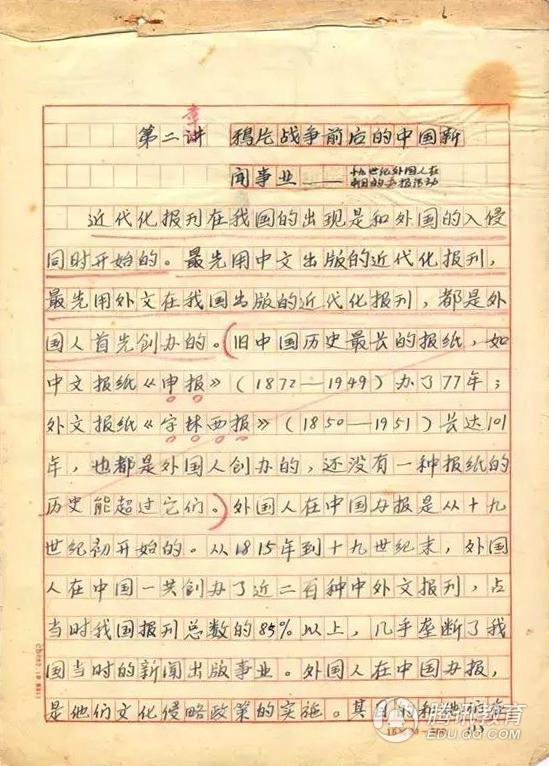 第二讲 鸦片战争前后的中国新
章
闻事业——十九世纪外国人在
中国的办报活动
近代化报刊在我国的出现是和外国的入侵
同时开始的。最先用中文出版的近代化报刊，
最先用外文在我国出版的近代化报刊，都是外
国人首先创办的。（旧中国历史最长的报纸，如
中文报纸《申报》（1872—1949）办了77年；
外文报纸《字林西报》（1850—1951）长达101
年，也都是外国人创办的，还没有一种报纸的
历史能超过它们。）外国人在中国办报是从十九
世纪初开始的。从1815年到十九世纪末，外国
人在中国一共创办了近二百种中外文报刊，占
当时我国报刊总数的85%以上，几乎垄断了我
国当时的新闻出版事业。外国人在中国办报，
是他们文化侵略政策的实施。其目的和他们在
腾讯教育
EDU.QQ.COM